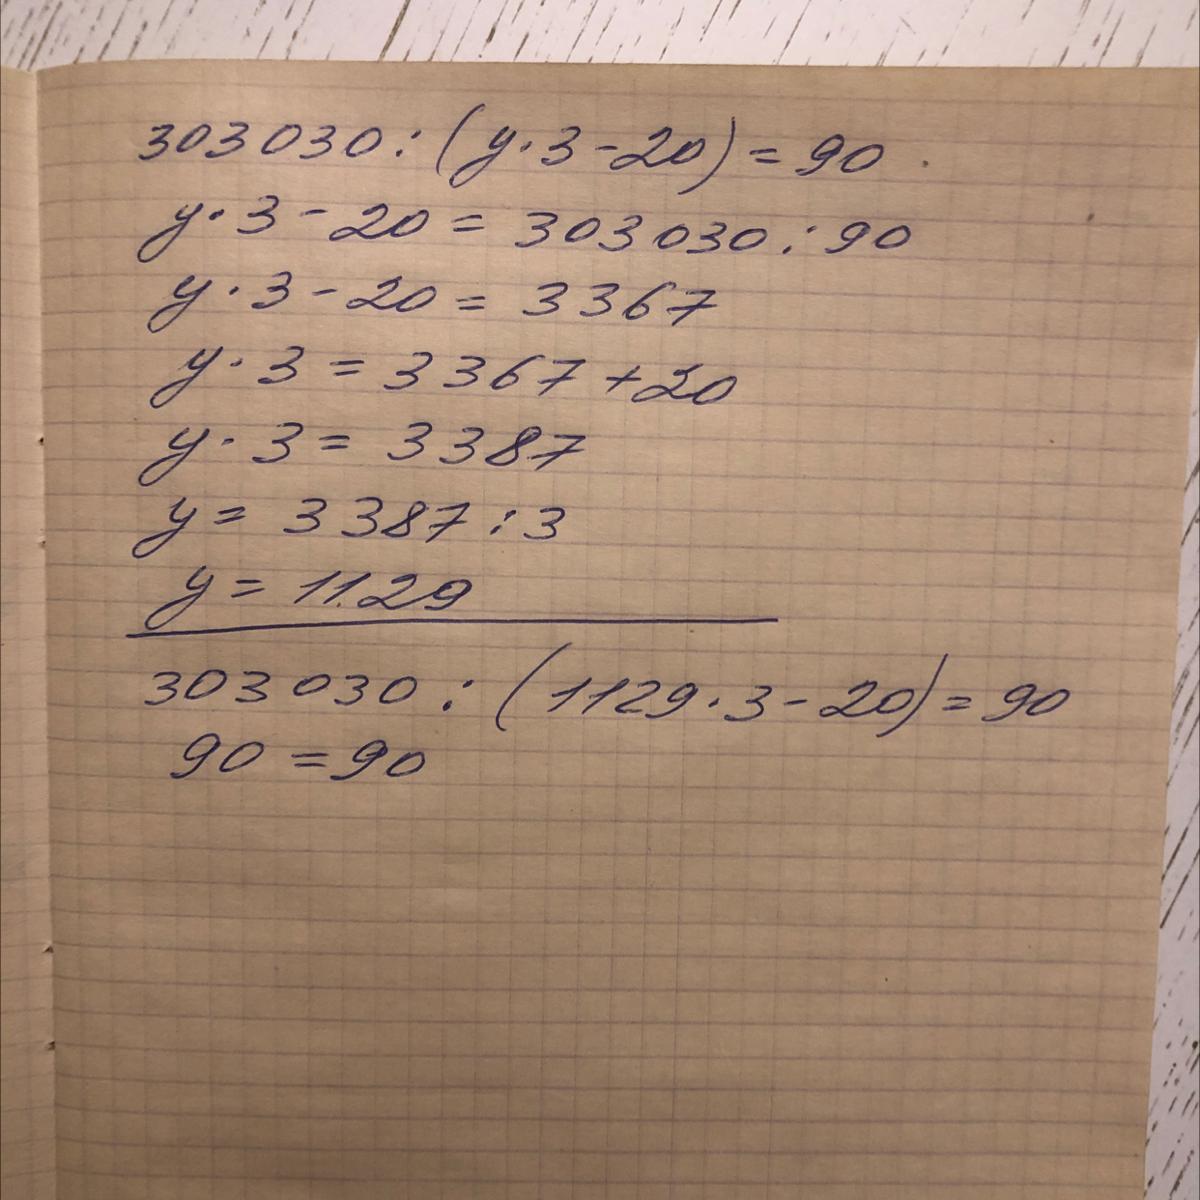 303030 : (y · 3 - 20) = 90
y · 3 - 20 = 303030 : 90
y · 3 - 20 = 3367
y · 3 = 3367 + 20
y · 3 = 3387
y = 3387 : 3
y = 1129
303030 : (1129 · 3 - 20) = 90
90 = 90